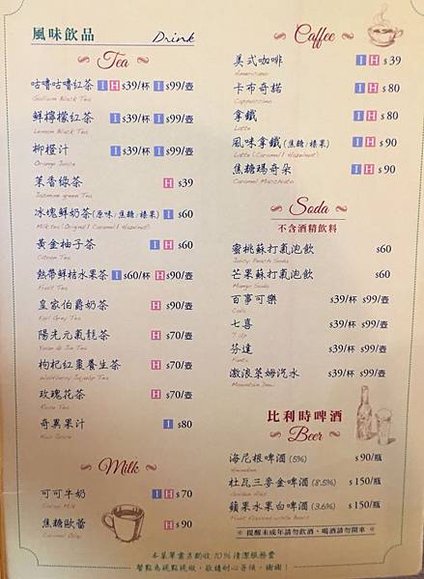 風味飲品 Drink
Tea
咕嚕咕嚕紅茶 I H $39/杯 I $99/壺
鮮檸檬紅茶 I H $39/杯 I $99/壺
Lemon Black Tea
柳橙汁 I $39/杯 I $99/壺
Orange Juice
茉香綠茶 H $39
Jasmine green Tea
冰塊鮮奶茶(原味/焦糖/榛果) I $60
黃金柚子茶 I H $60
Citron Tea
熱帶鮮桔水果茶 I $60/杯 H $90/壺
Fruit Tea
皇家伯爵奶茶 H $90/壺
Earl Grey Tea
陽光元氣毬茶 H $70/壺
枸杞紅棗養生茶 H $70/壺
玫瑰花茶 H $70/壺
Rose Tea
奇異果汁 I $80
Kiwi Juice
Milk
可可牛奶 I H $70
Cocoa Milk
焦糖歐蕾 H $90
Caffee
美式咖啡 I H $39
Americano
卡布奇諾 I H $80
Cappuccino
拿鐵 I H $80
Latte
風味拿鐵(焦糖/榛果) I H $90
Latte (Caramel/Hazelnut)
焦糖瑪奇朵 I H $90
Caramel Macchiato
Soda
不含酒精飲料
蜜桃蘇打氣泡飲 $60
Juicy Peach Soda
芒果蘇打氣泡飲 $60
Mango Soda
百事可樂 $39/杯 $99/壺
Cola
七喜 $39/杯 $99/壺
7 Up
芬達 $39/杯 $99/壺
Fanta
激浪萊姆汽水 $39/杯 $99/壺
Mountain Dew
比利時啤酒
Beer
海尼根啤酒(5%) $90/瓶
Heineken
杜瓦三麥金啤酒(8.5%) $150/瓶
蘋果水果白啤酒(3.6%) $150/瓶
※提醒未成年請勿飲酒、喝酒請勿開車※
本菜單需另酌收10%清潔服務費
餐點為現點現做，敬請耐心等候，謝謝！